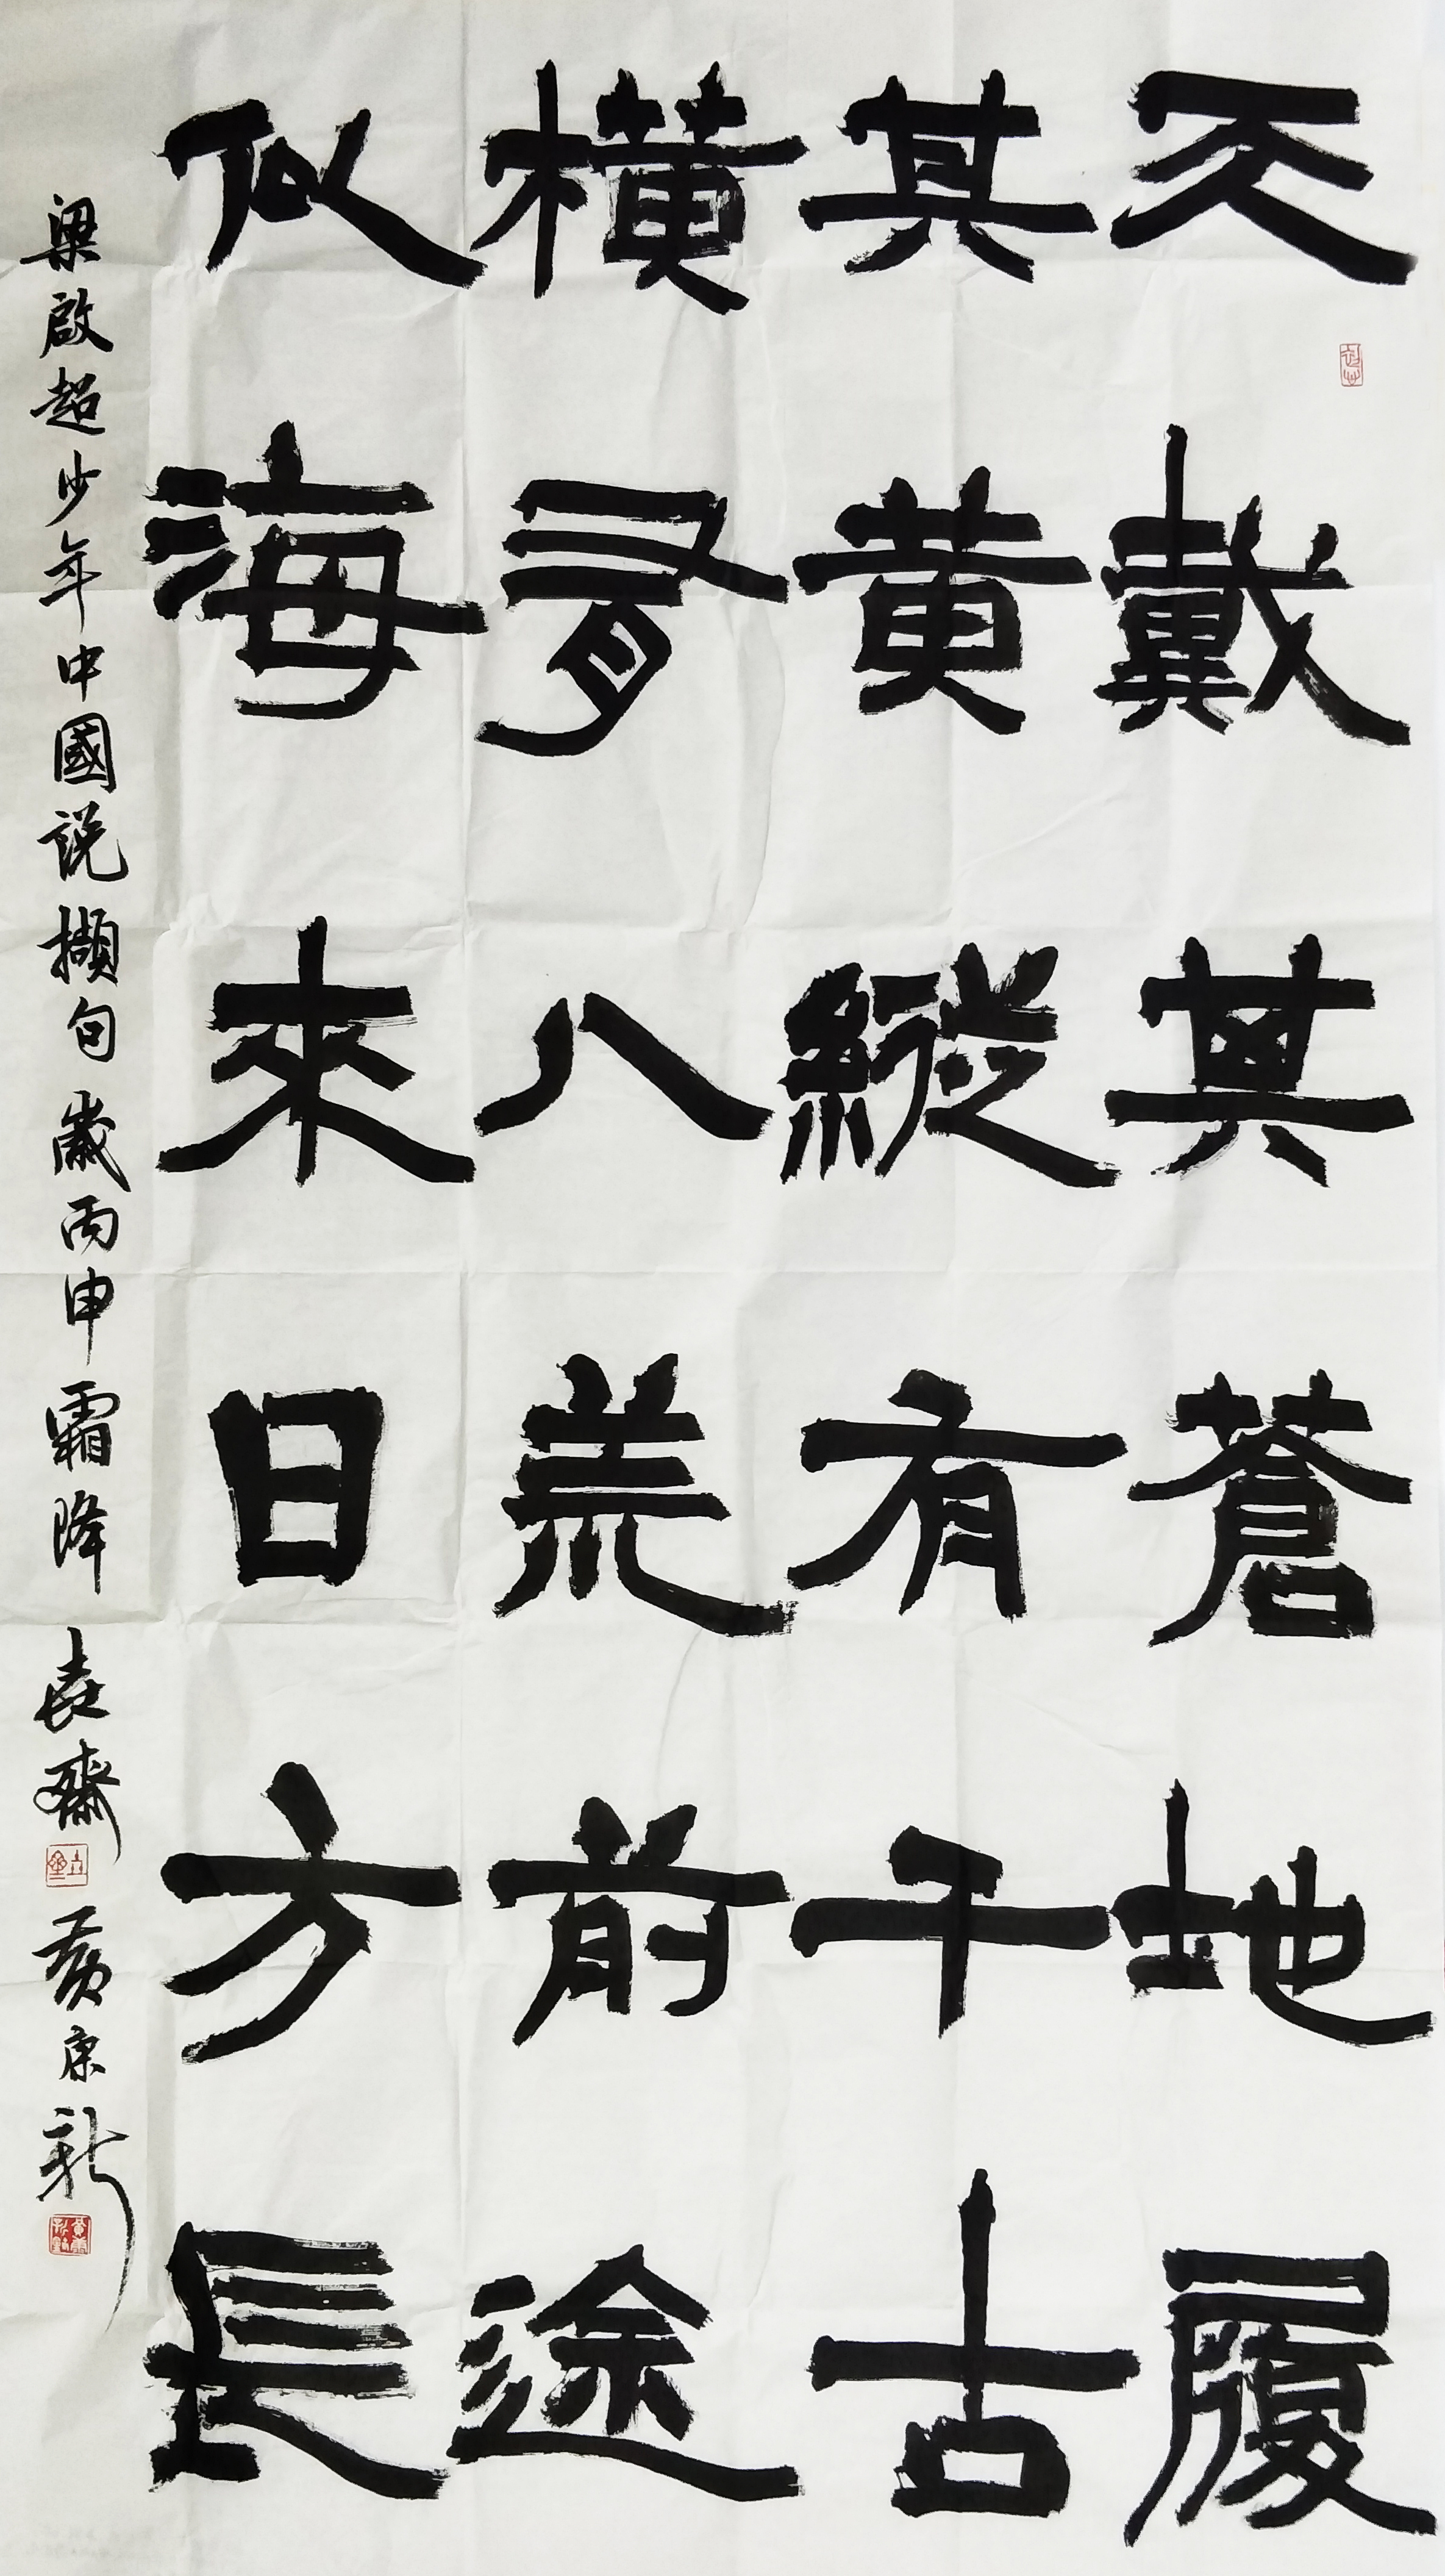 天戴其蒼地履
其黄縱有千古
横有八荒前途
似海來日方長
梁啟超少年中國説擷句歲丙申霜降 齋 黄康新